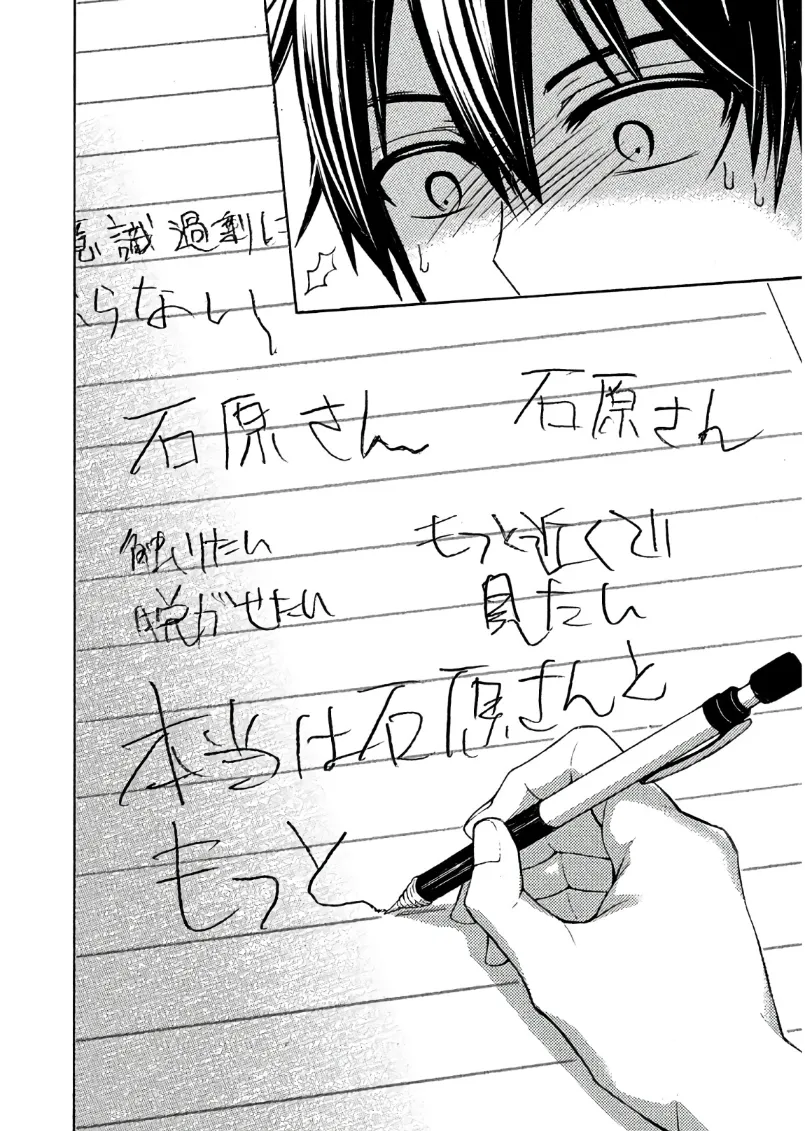 意識過剰に
らない
石原さん
石原さん
もっと近くで
見たい
触りたい
脱がせたい
本当は石原さんと
もっと